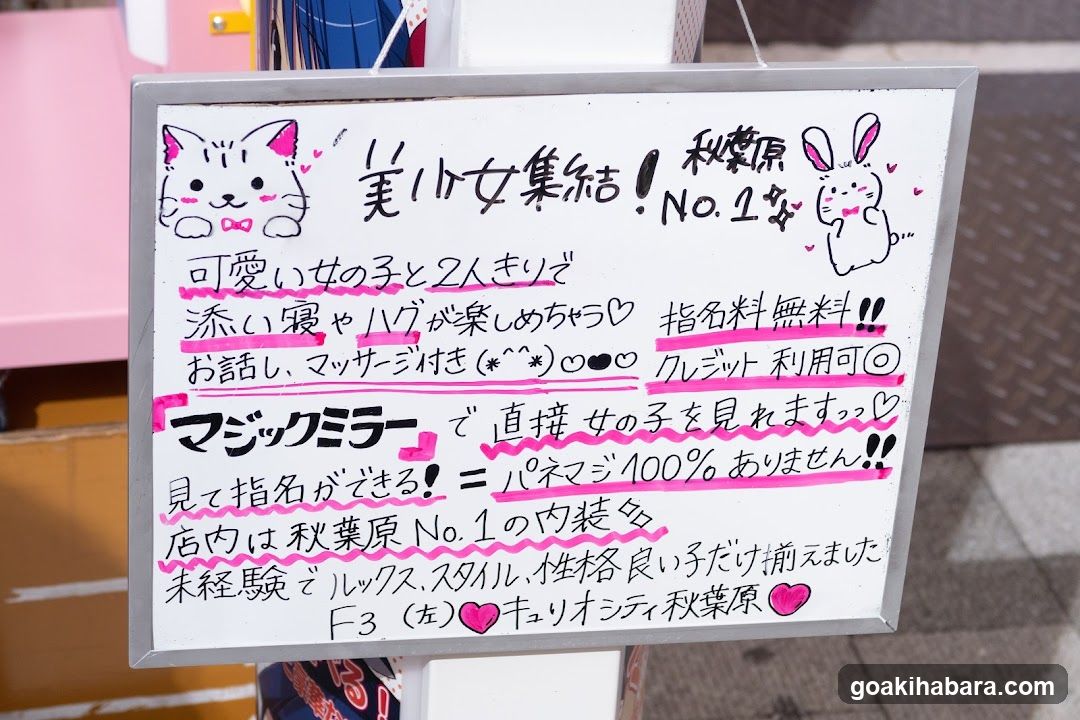 美少女集結!
秋葉原
No.1
可愛い女の子と2人きりで
添い寝やハグが楽しめちゃう♡
お話し、マッサージ付き(*^^*)♡●♡
指名料無料!!
クレジット利用可◎
「マジックミラー」で直接女の子を見れますっっ♡
見て指名ができる!=パネマジ100%ありません!!
店内は秋葉原No.1の内装
未経験でルックス、スタイル、性格良い子だけ揃えました
F3(左)♥キュリオシティ秋葉原♥
goakihabara.com